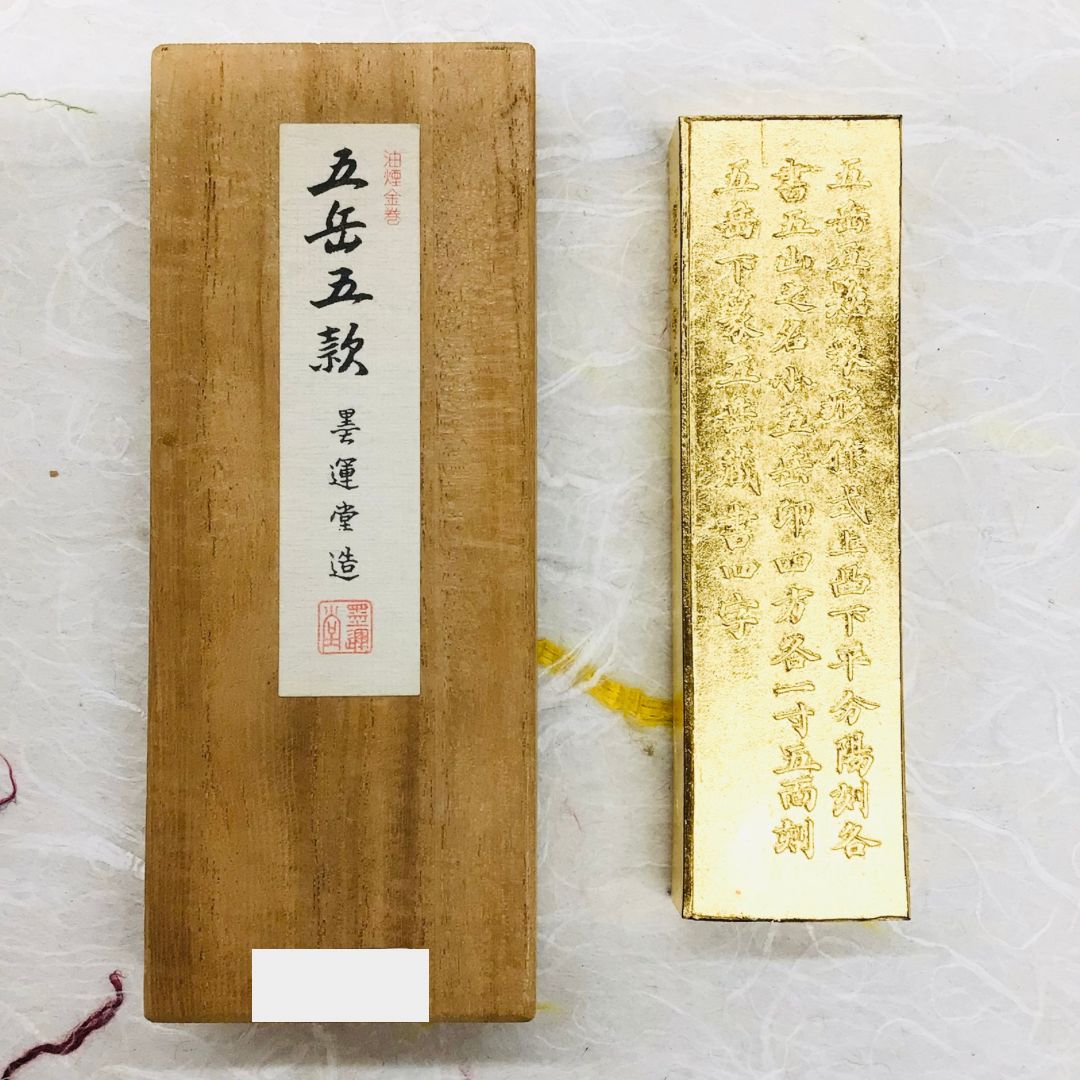 油煙金巻
五岳五款
墨運堂造
墨運堂
五岳五 象形 式上凸下平分陽刻各
書五山之名小五岳印四方各一寸五面刻
五岳下篆 藏書四字